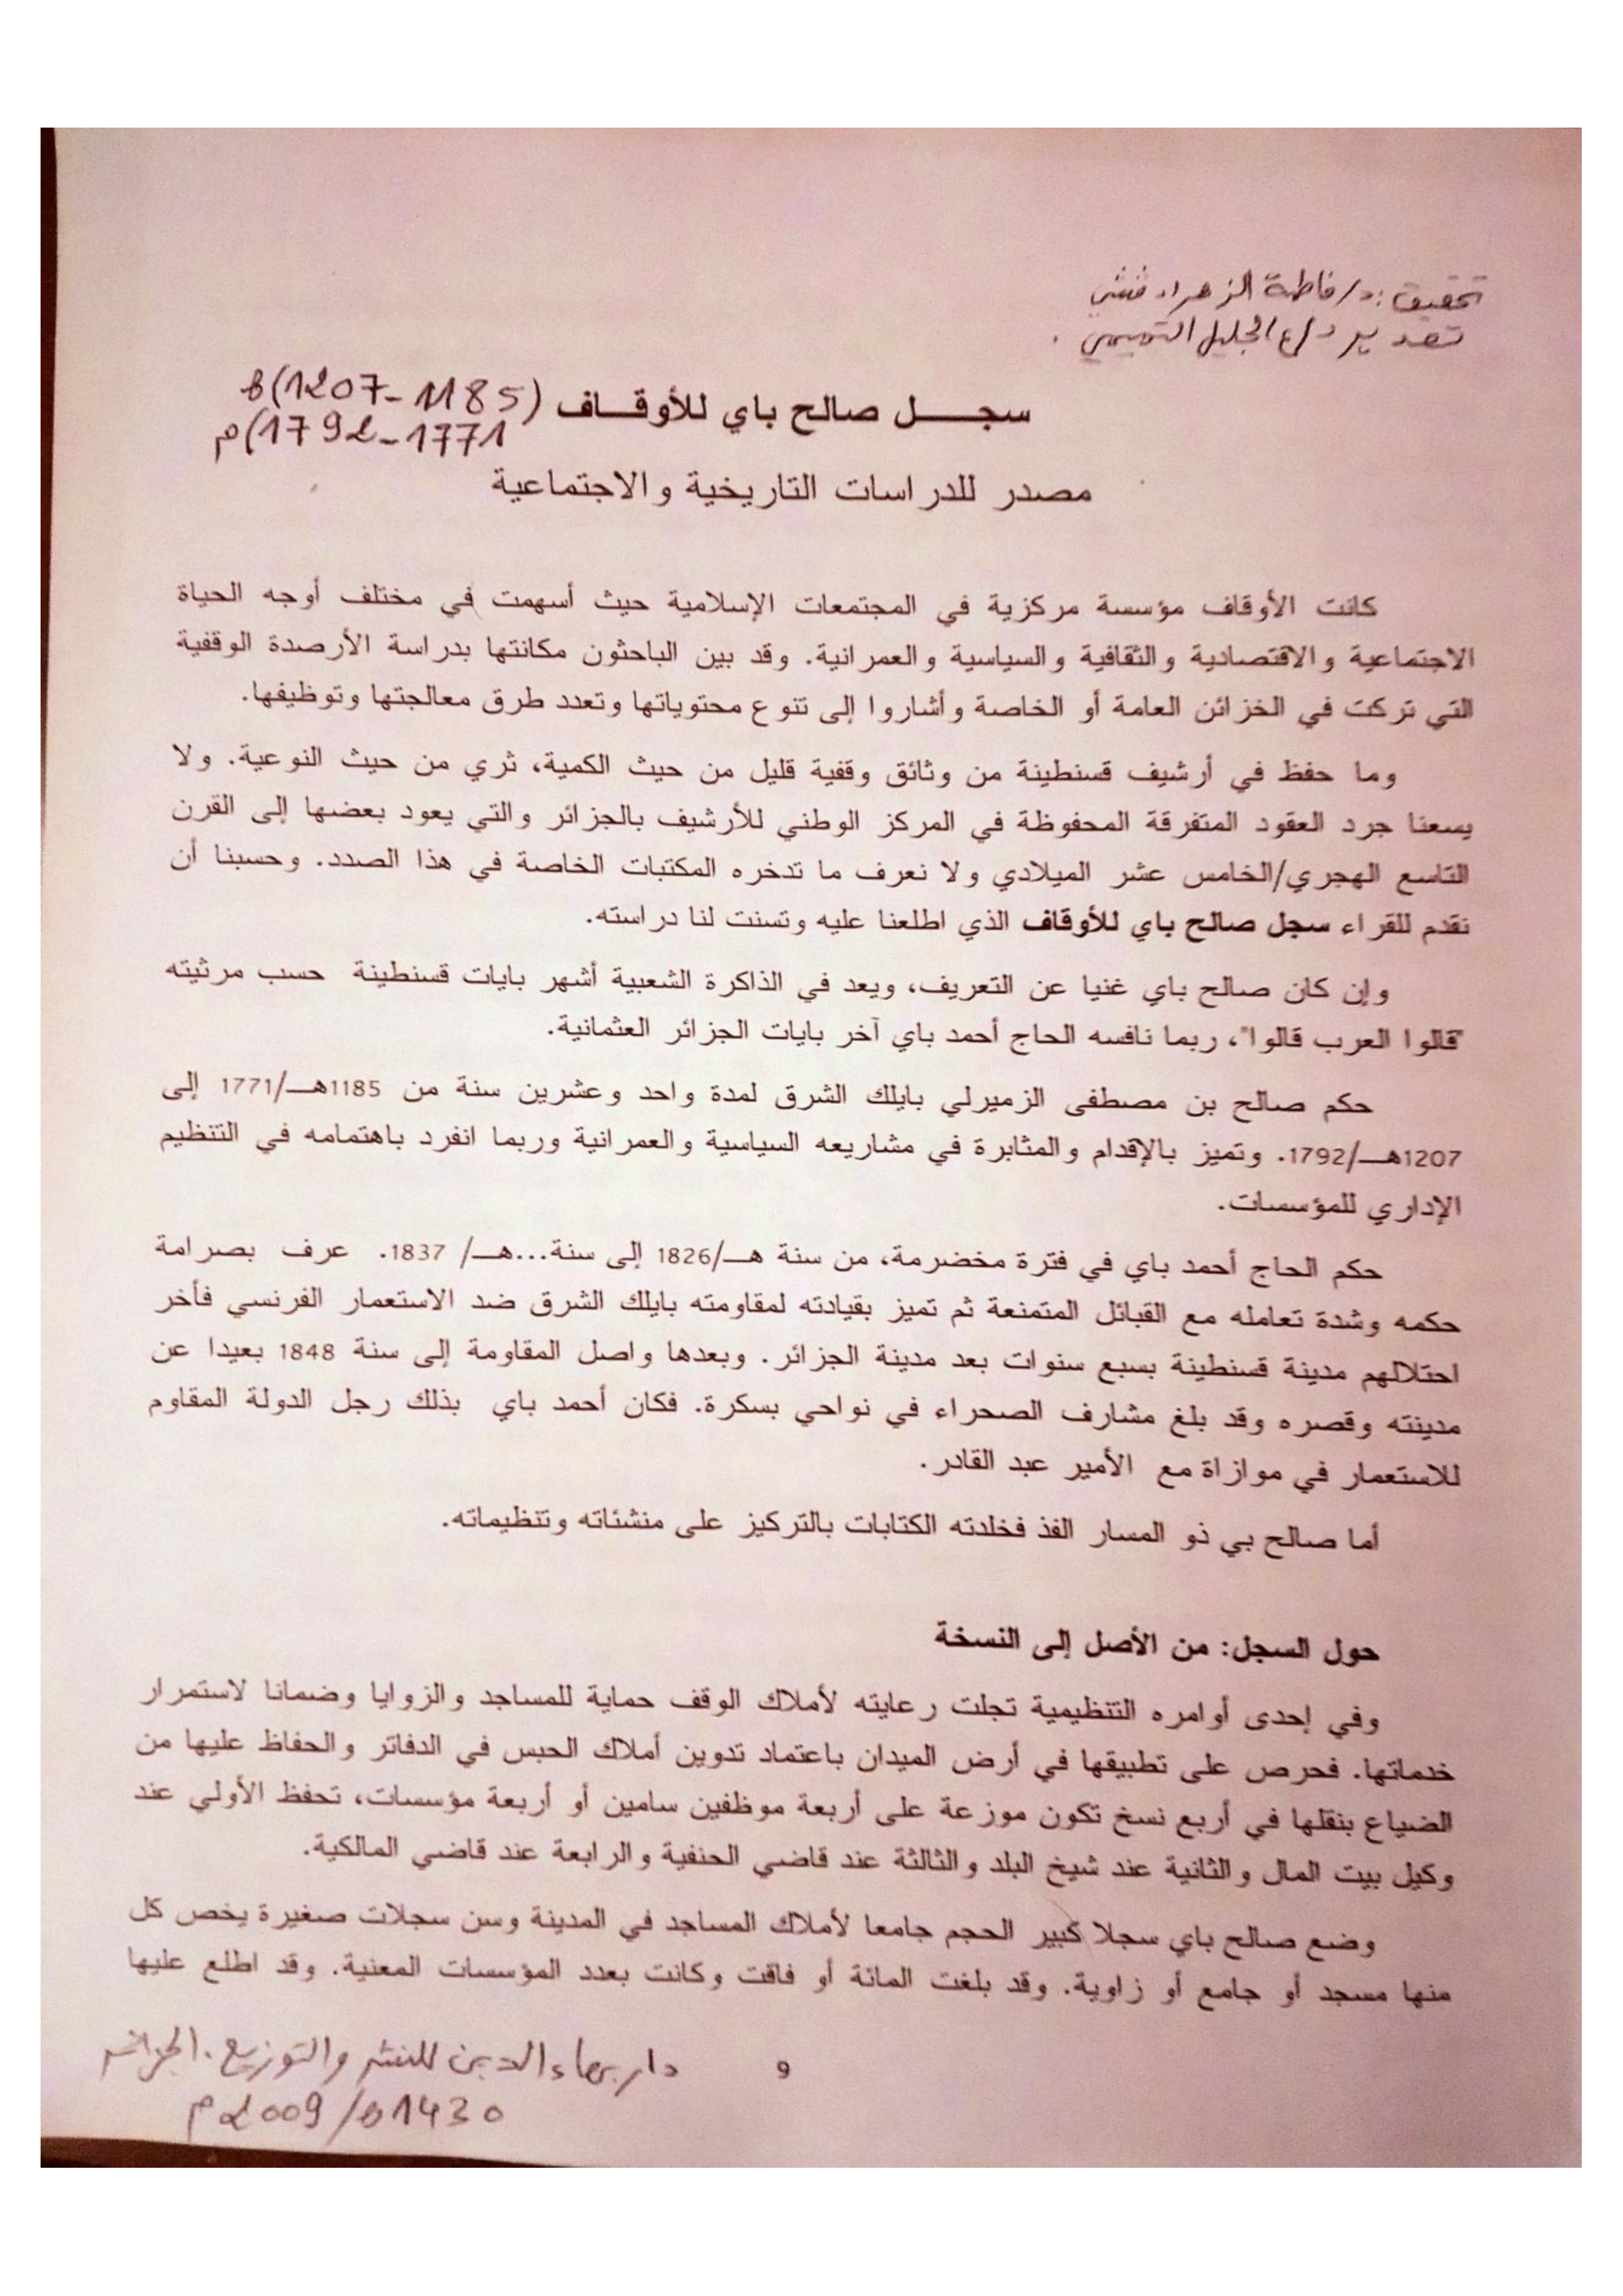 تحقيق: د/ فاطمة الزهراء قشي
تقديم د/ع الجليل التميمي.
سجـــل صالح باي للأوقــاف (1185-1207)ه
1771-1792)م
مصدر للدراسات التاريخية والاجتماعية
كانت الأوقاف مؤسسة مركزية في المجتمعات الإسلامية حيث أسهمت في مختلف أوجه الحياة
الاجتماعية والاقتصادية والثقافية والسياسية والعمرانية. وقد بين الباحثون مكانتها بدراسة الأرصدة الوقفية
التي تركت في الخزائن العامة أو الخاصة وأشاروا إلى تنوع محتوياتها وتعدد طرق معالجتها وتوظيفها.
وما حفظ في أرشيف قسنطينة من وثائق وقفية قليل من حيث الكمية، ثري من حيث النوعية. ولا
يسعنا جرد العقود المتفرقة المحفوظة في المركز الوطني للأرشيف بالجزائر والتي يعود بعضها إلى القرن
التاسع الهجري/الخامس عشر الميلادي ولا نعرف ما تدخره المكتبات الخاصة في هذا الصدد. وحسبنا أن
نقدم للقراء سجل صالح باي للأوقاف الذي اطلعنا عليه وتسنت لنا دراسته.
وإن كان صالح باي غنيا عن التعريف، ويعد في الذاكرة الشعبية أشهر بايات قسنطينة حسب مرثيته
"قالوا العرب قالوا"، ربما نافسه الحاج أحمد باي آخر بايات الجزائر العثمانية.
حكم صالح بن مصطفى الزميرلي بايلك الشرق لمدة واحد وعشرين سنة من 1185هـ/1771 إلى
1207هـ/1792. وتميز بالإقدام والمثابرة في مشاريعه السياسية والعمرانية وربما انفرد باهتمامه في التنظيم
الإداري للمؤسسات.
حكم الحاج أحمد باي في فترة مخضرمة، من سنة هـ/1826 إلى سنة...هـ/ 1837. عرف بصرامة
حكمه وشدة تعامله مع القبائل المتمنعة ثم تميز بقيادته لمقاومته بايلك الشرق ضد الاستعمار الفرنسي فأخر
احتلالهم مدينة قسنطينة بسبع سنوات بعد مدينة الجزائر. وبعدها واصل المقاومة إلى سنة 1848 بعيدا عن
مدينته وقصره وقد بلغ مشارف الصحراء في نواحي بسكرة. فكان أحمد باي بذلك رجل الدولة المقاوم
للاستعمار في موازاة مع الأمير عبد القادر.
أما صالح بي ذو المسار الفذ فخلدته الكتابات بالتركيز على منشئاته وتنظيماته.
حول السجل: من الأصل إلى النسخة
وفي إحدى أوامره التنظيمية تجلت رعايته لأملاك الوقف حماية للمساجد والزوايا وضمانا لاستمرار
خدماتها. فحرص على تطبيقها في أرض الميدان باعتماد تدوين أملاك الحبس في الدفاتر والحفاظ عليها من
الضياع بنقلها في أربع نسخ تكون موزعة على أربعة موظفين سامين أو أربعة مؤسسات، تحفظ الأولي عند
وكيل بيت المال والثانية عند شيخ البلد والثالثة عند قاضي الحنفية والرابعة عند قاضي المالكية.
وضع صالح باي سجلا كبير الحجم جامعا لأملاك المساجد في المدينة وسن سجلات صغيرة يخص كل
منها مسجد أو جامع أو زاوية. وقد بلغت المائة أو فاقت وكانت بعدد المؤسسات المعنية. وقد اطلع عليها
9 دار بهاء الدين للنشر والتوزيع. الجزائر
1430ه/2009م